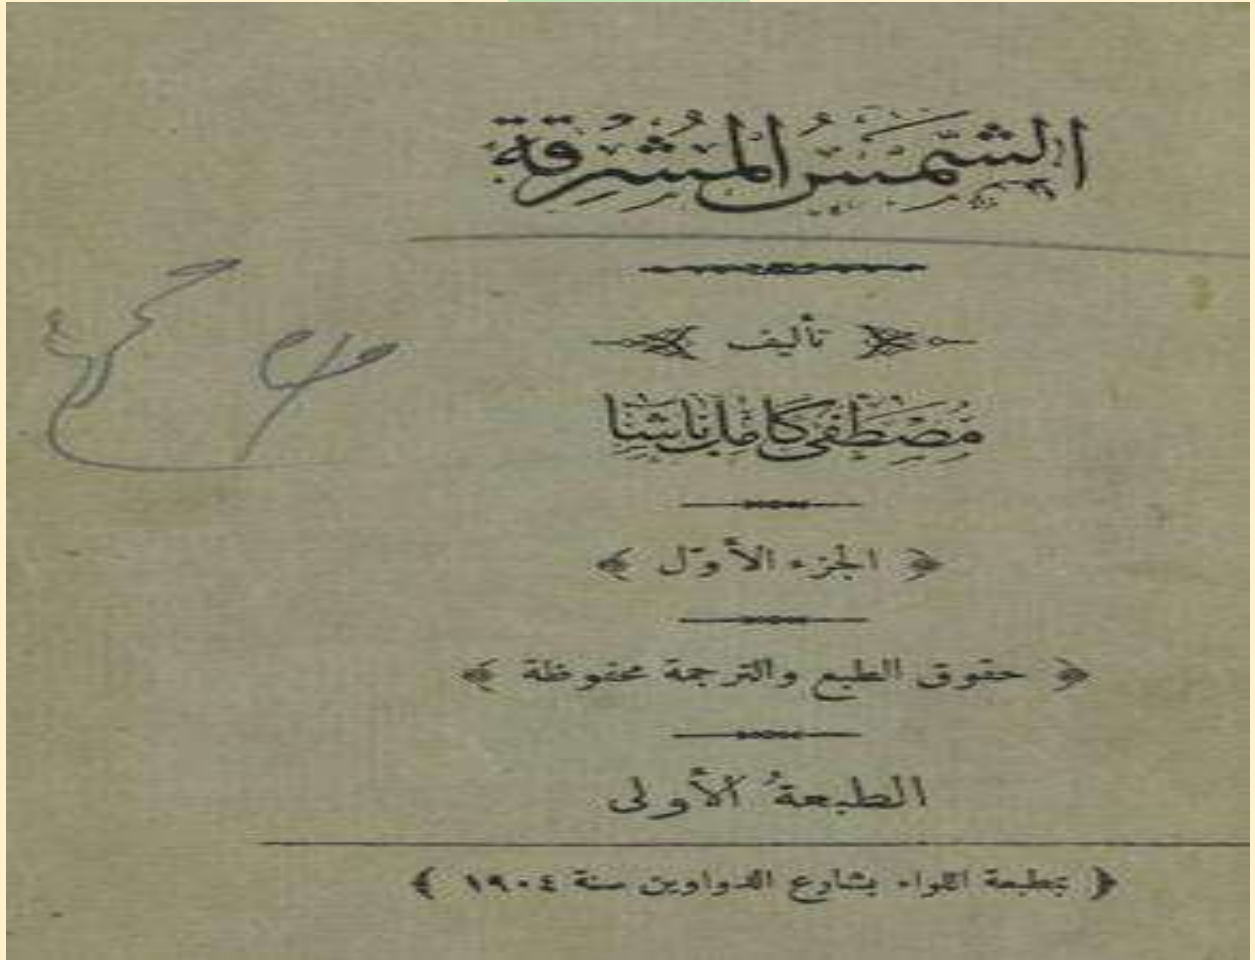 الشَّمسُ المُشرِقة
تأليف
مُصْطَفى كامِل باشا
﴿ الجزء الأوّل ﴾
﴿ حقوق الطبع والترجمة محفوظة ﴾
الطبعةُ الأولى
﴿ بمطبعة اللواء بشارع الدواوين سنة ١٩٠٤ ﴾